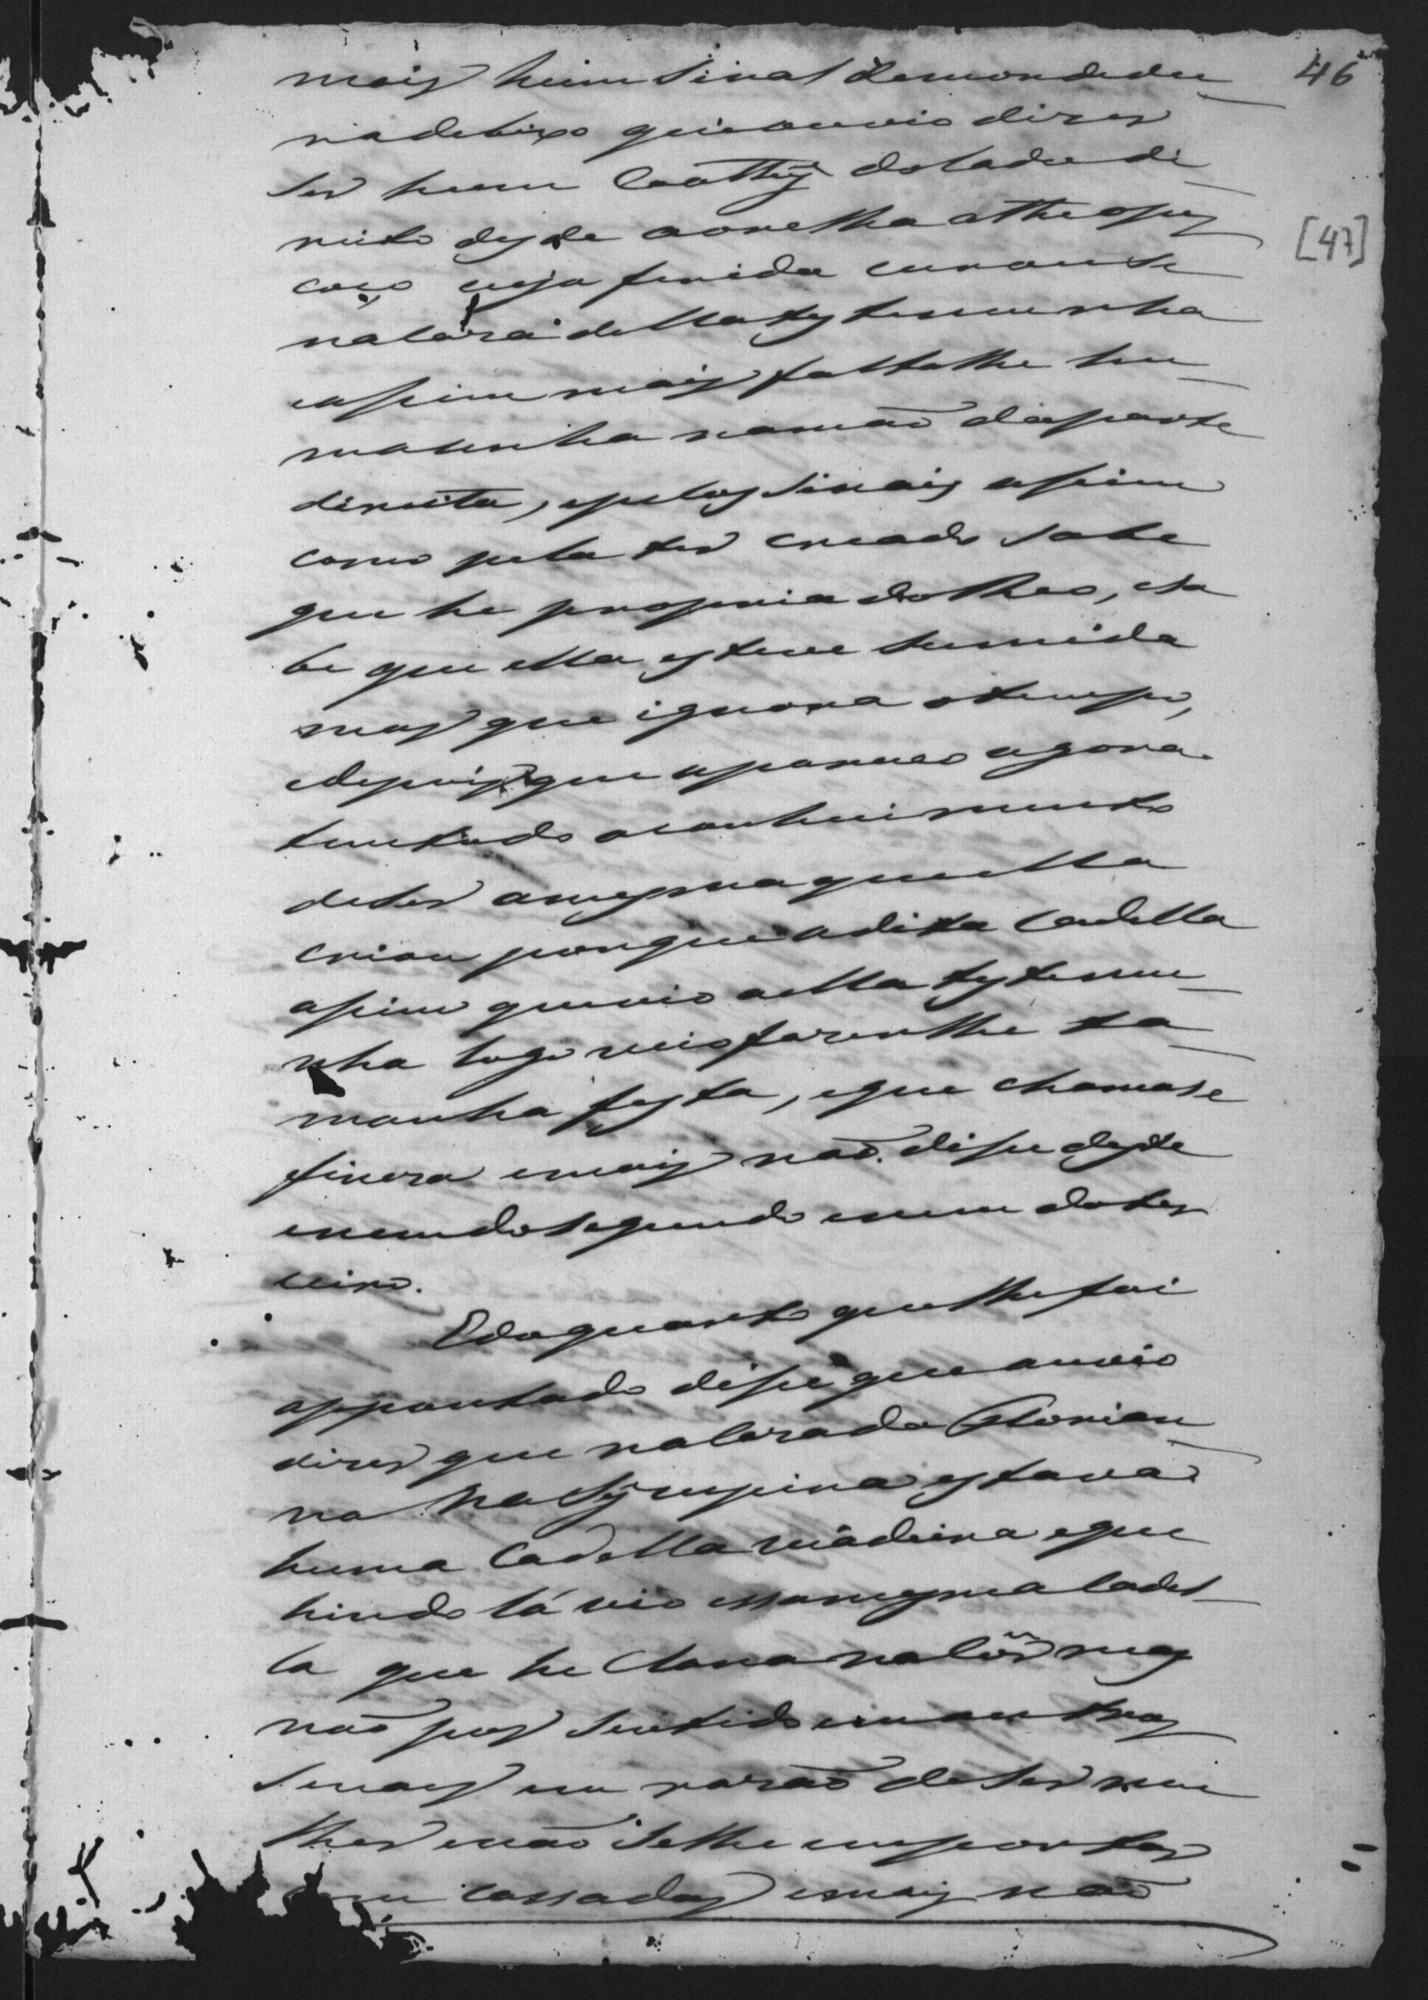 46
mais hum sinal demordedu
ra debixo que ouvio dizer
ser hum Coathy do lado di
reito desde aorelha athe opes
coço cuja ferida curouse
nacaza della testemunha
easim mais faltalhe hu
maunha namaõ daparte
direita, epelos sinais asim
como pela ter creado sabe
que he propria do Reo, esa
be que ella esteve sumida
mas que ignora otempo,
edepois que apareceo agora
tem tudo oconhecimento
deser amesma que ella
criou porque adita Cadella
asim que vio aella testemu
nha logo veio fazerlhe ta
manha festa, eque chamase
fineza emais naõ dise deste
enem do segundo enem do ter
ceiro.
Edo quarto que lhe foi
appontado dise que ouvio
dizer que nacaza da Floriana
na
huma Cadella viadeira eque
hindo lá vio essa mesma Cadel
la que he Clara na Côr mas
naõ pos sentido em outros
sinais em razaõ de ser mu
lher enaõ selhe emportar
com cassadas emais naõ
[47]